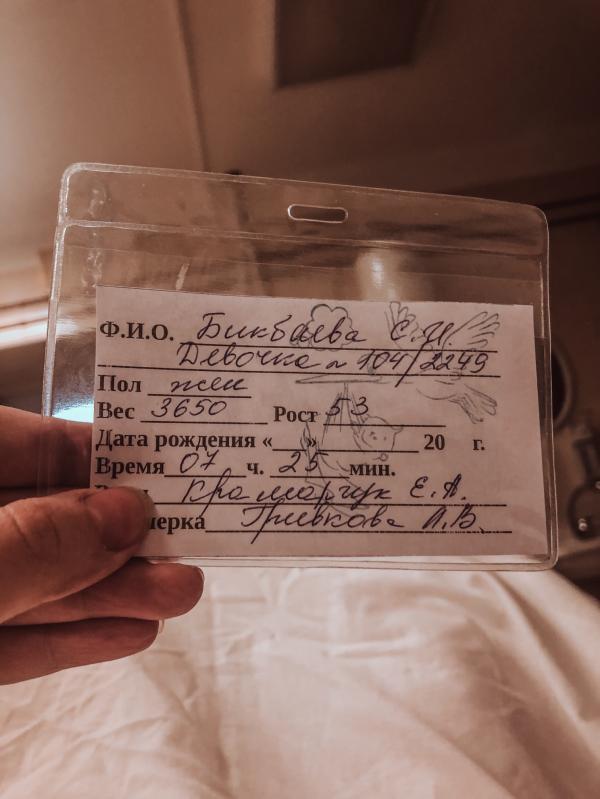 Ф.И.О. Бикбаева С.И.
Девочка № 104/2249
Пол жен
Вес 3650 Рост 53
Дата рождения «___»__________ 20 г.
Время 07 ч. 25 мин.
Крамарчук Е.А.
Гривкова Л.В.